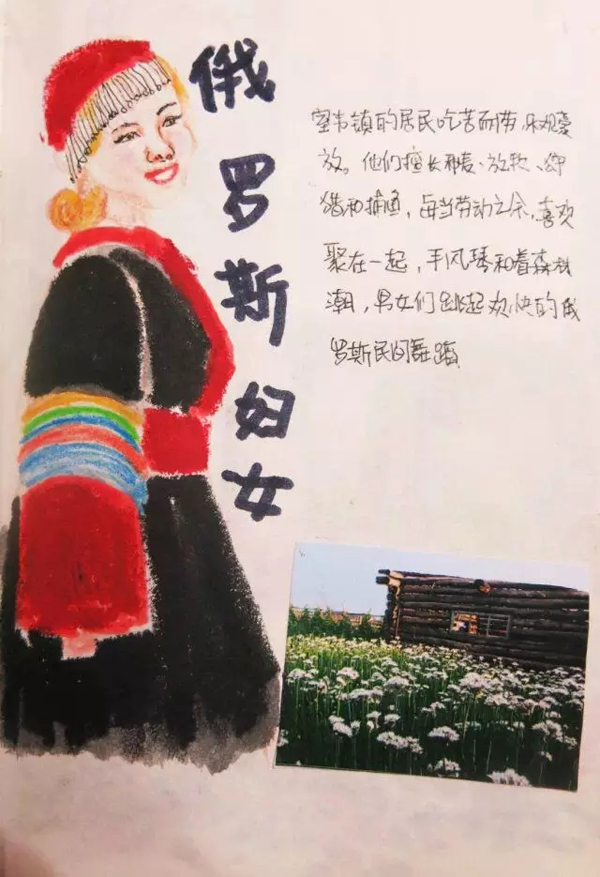 俄罗斯妇女
室韦镇的居民吃苦而劳,乐观豪
放。他们擅长种麦、放牧、狩
猎和捕渔,每当劳动之余,喜欢
聚在一起,手风琴和着森林
潮,男女们跳起欢快的俄
罗斯民间舞蹈